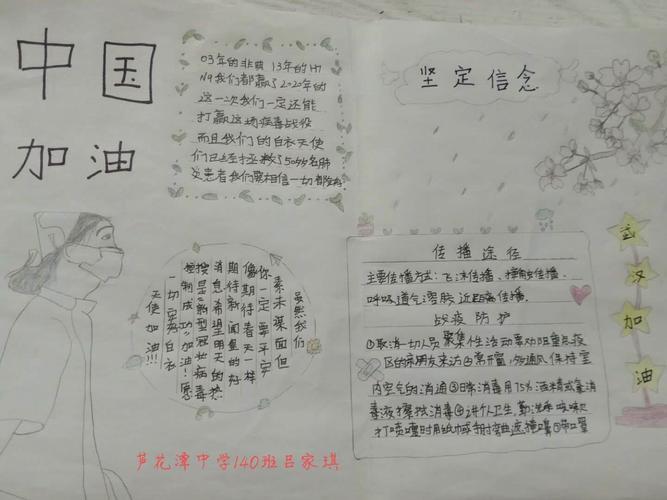 中国
加油
03年的非典 13年的H7
N9我们都赢了2020年的
这一次我们一定还能
打赢这场病毒战役
而且我们的白衣天使
们已经拯救了50多名肺
炎患者我们要相信一切都
坚定信念
虽然我们
素未谋面但
你一定要平安
像期待春天一样
期待新闻里的好
消息希望明天的热
搜是新型冠状病毒
控制成功加油！愿
一切安好白衣
天使加油!!!
传播途径
主要传播方式：飞沫传播、接触传播、
呼吸道气溶胶 近距离传播.
战疫防护
①取消一切人员聚集性活动要劝阻重点疫
区的亲朋友来访②常开窗,多通风保持室
内空气的消通③日常消毒用75%酒精或氯消
毒液擦拭消毒④讲个人卫生,勤洗手咳嗽
打喷嚏时用纸巾或手肘遮掩嘴⑤带口罩
武汉加油
芦花潭中学140班吕家琪